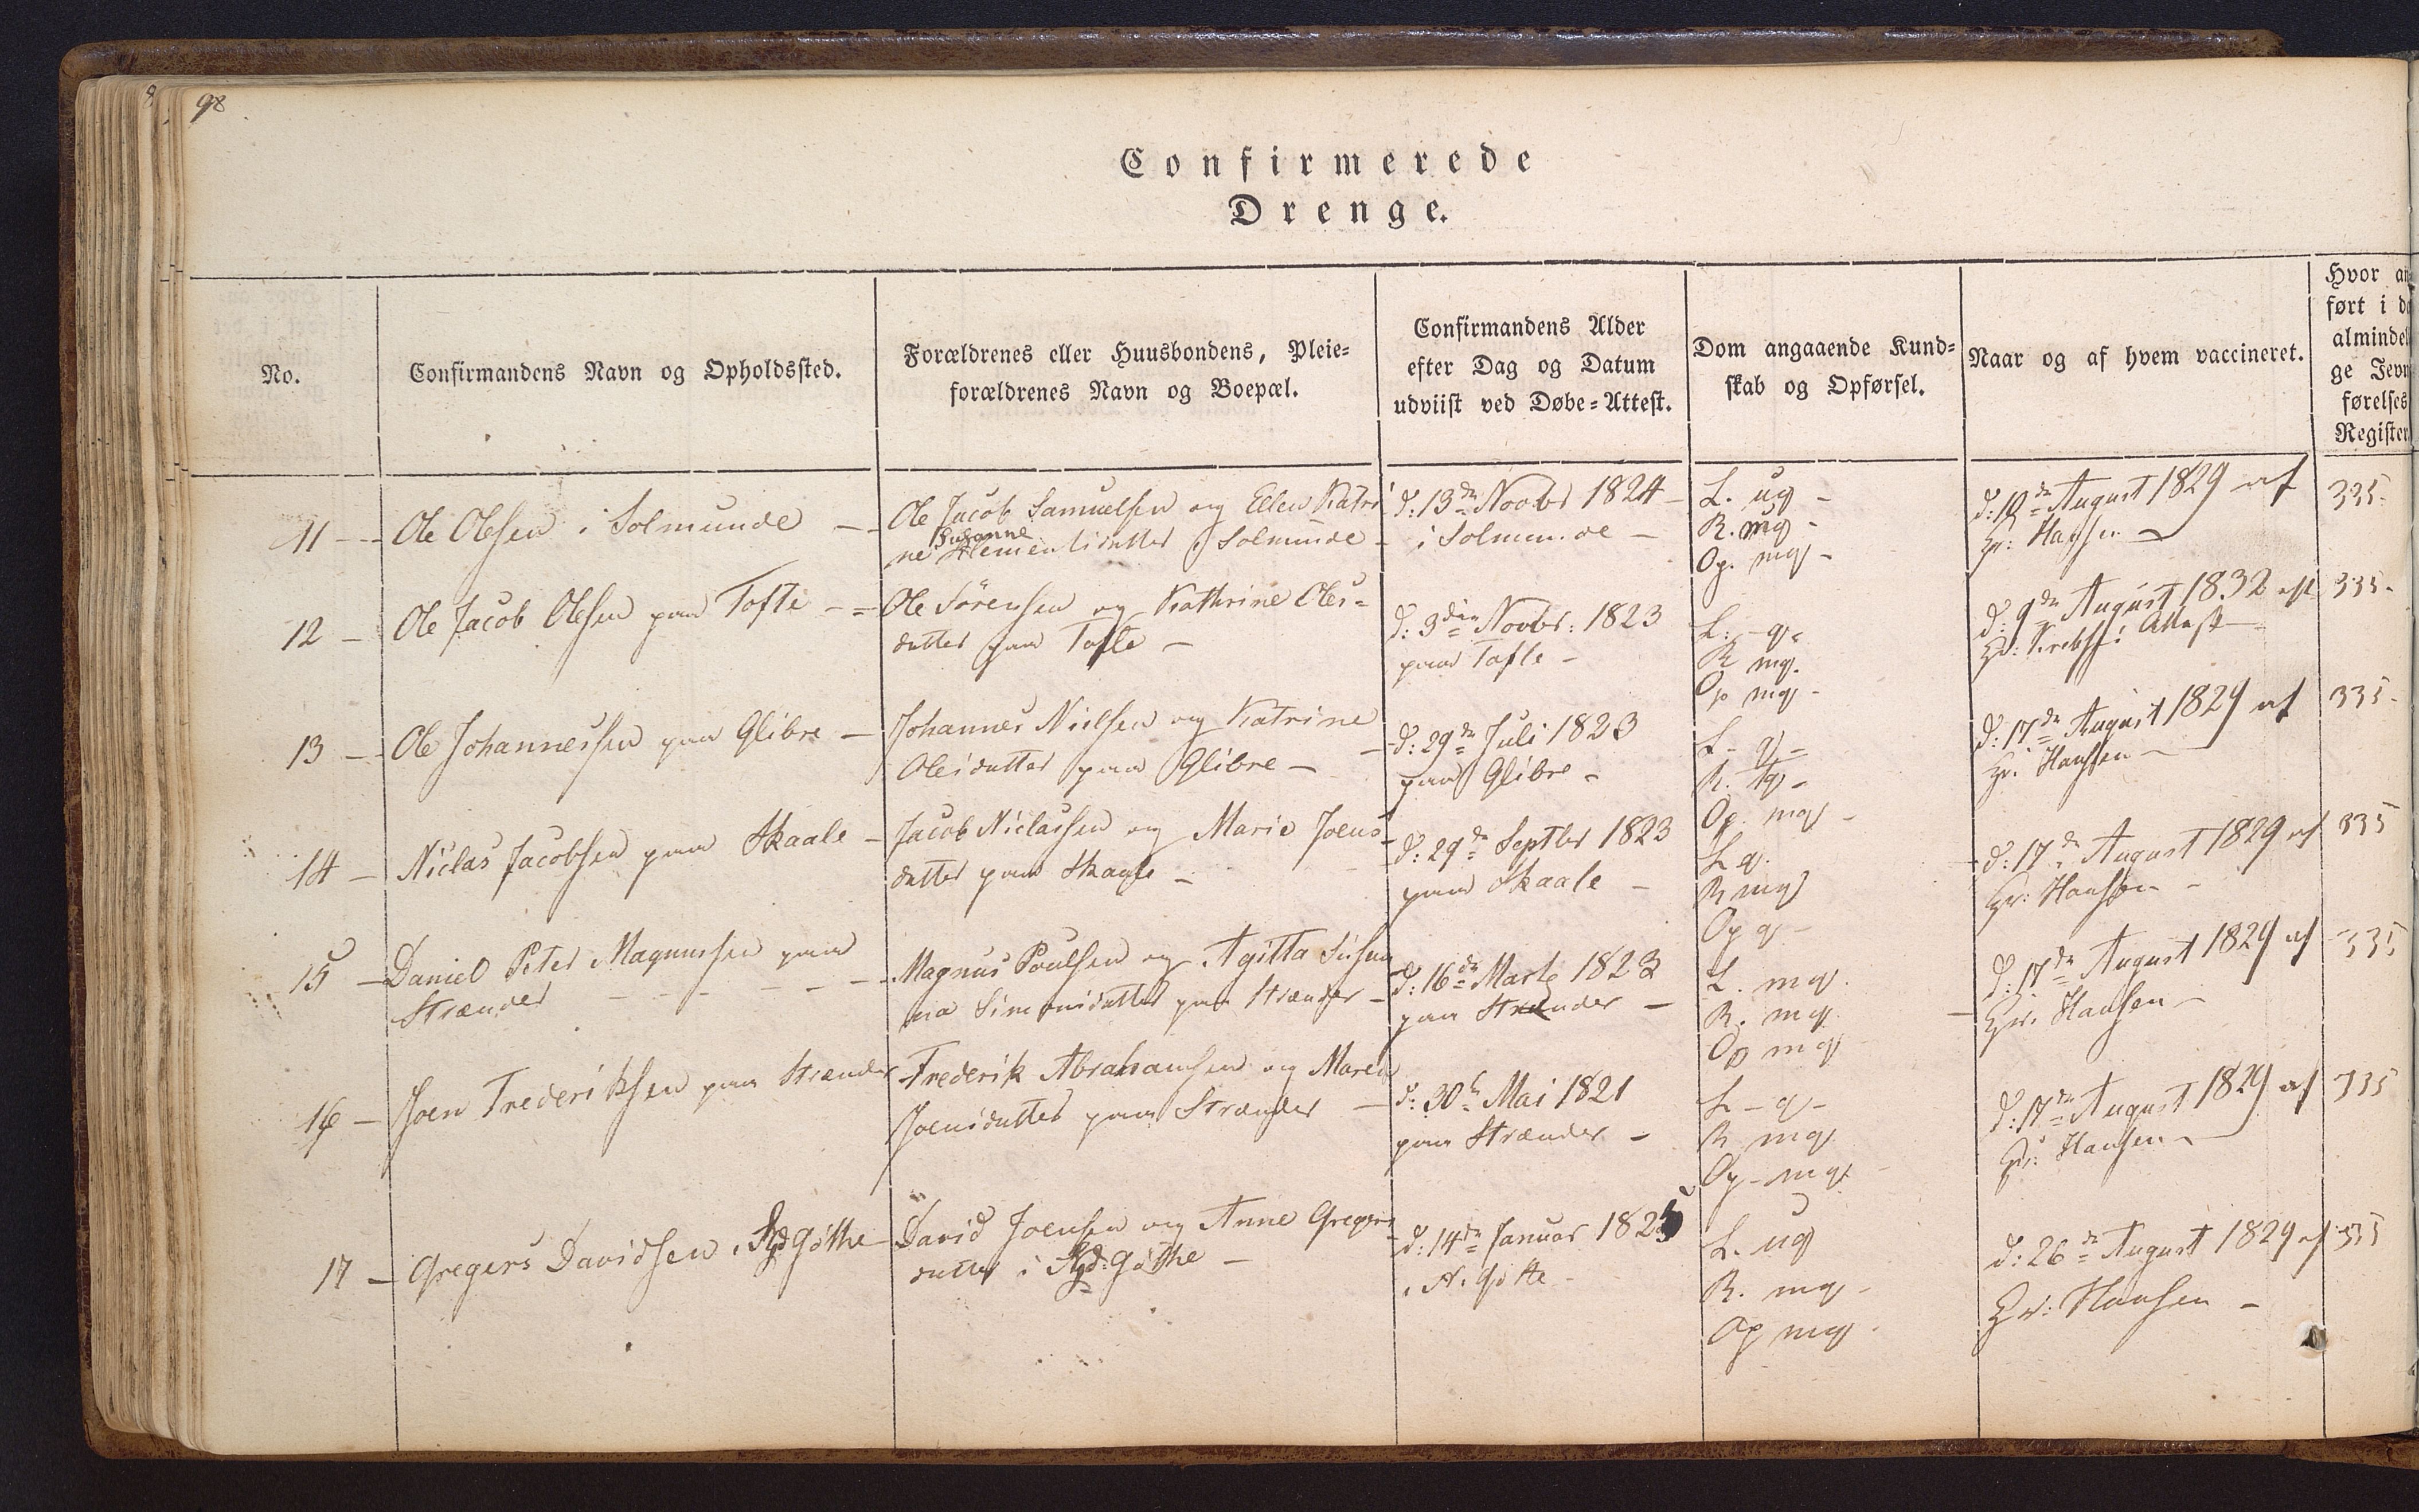 98
Confirmerede
Drenge.
No.
Confirmandens Navn og Opholdssted.
Forældrenes eller Huusbondens, Pleie-
forældrenes Navn og Boepæl.
Confirmandens Alder
efter Dag og Datum
udviist ved Døbe-Attest.
Dom angaaende Kund-
skab og Opførsel.
Naar og af hvem vaccineret.
Hvor an-
ført i de
almindel
ge Jevn
førelses
Register
11 - Ole Olesen i Solmunde -
Ole Jacob Samuelsen og Ellen Katri
Susanne
ne Klementsdatter i Solmunde -
d: 13de Novbr 1824 -
i Solmunde -
L. ug -
R. mg -
Op. mg -
August 1829 af
Hr: Hansen -
335-
12 - Ole Jacob Olesen paa Tofte -
Ole Sörensen og Kathrine Oles-
datter paa Tofte -
d: 3die Novbr: 1823
paa Tofte -
L: g.
R mg.
Op mg -
d: 9de August 1832
Attest
335-
13 - Ole Johannessen paa Glibre -
Johannes Nielsen og Katrine
Olesdatter paa Glibre -
d: 29de Juli 1823
paa Glibre -
L - g -
R. tg -
Op. mg -
d: 17de August 1829 af
Hr: Hansen -
335-
14 - Niclas Jacobsen paa Skaale -
Jacob Niclassen og Marie Joens-
datter paa Skaale -
d: 29de Septbr 1823
paa Skaale -
L g.
R mg
Op g -
d: 17de August 1829 af
Hr: Hansen -
335
15 - Daniel Peter Magnussen paa
Strænder -
Magnus Poulsen og Agitta Susan
na Simonsdatter paa Strænder -
d: 16de Marts 1823
paa Strænder -
L. mg.
R. mg.
Op mg
d: 17de August 1829 af
Hr. Hansen -
335
16 - Joen Frederiksen paa Strænder
Frederik Abrahamsen og Maren
Joensdatter paa Strænder -
d: 30te Mai 1821
paa Strænder -
L - g -
R mg
Op - mg.
d: 17de August 1829 af
Hr: Hansen -
335
17 - Gregers Davidsen i Syd Göthe
David Joensen og Anne Gregers
datter i Syd: Göthe -
d: 14de Januar 1825
i N. Göthe -
L. ug
R. mg -
Op mg -
d: 26de August 1829 af
Hr: Hansen -
335